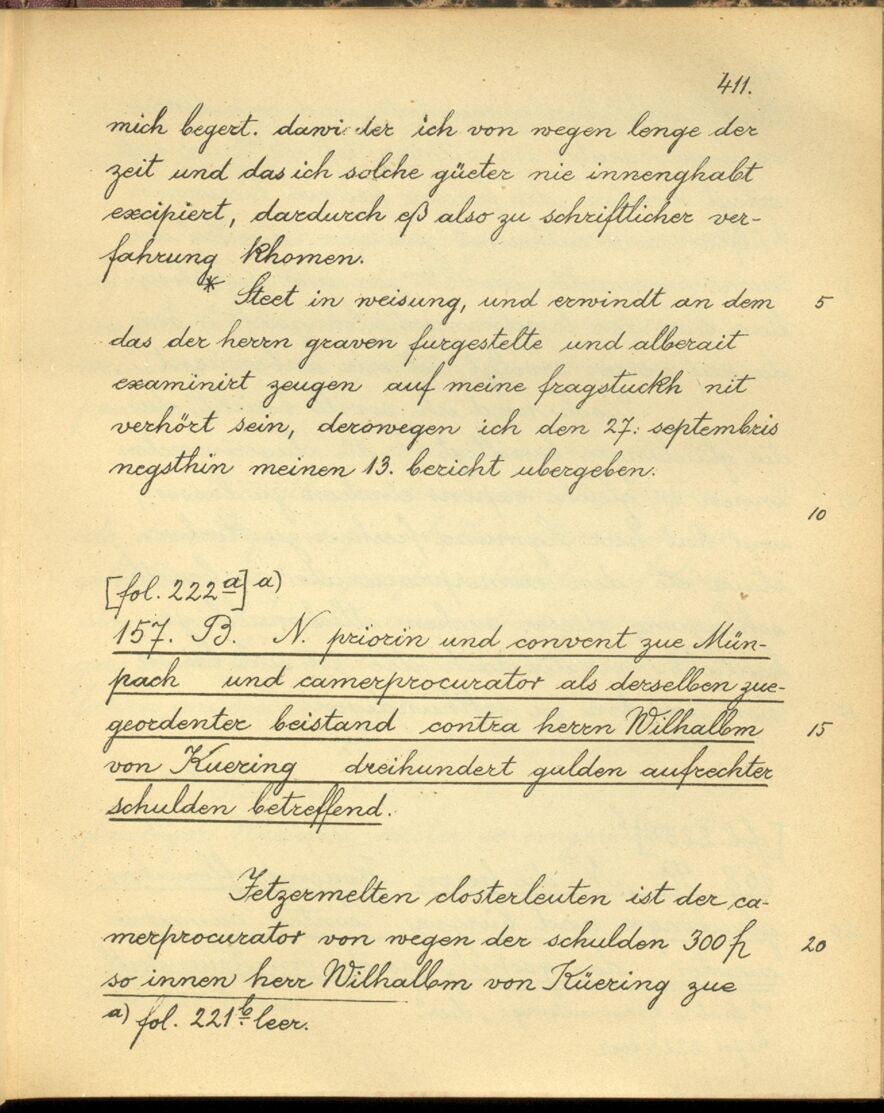 411.
mich begert. dawider ich von wegen lenge der
zeit und das ich solche güeter nie innenghabt
excipiert, dardurch eß also zu schriftlicher ver-
fahrung khomen.
* Steet in weisung, und erwindt an dem 5
das der herrn graven furgestelte und alberait
examinirt zeugen auf meine fragstuckh nit
verhört sein, derowegen ich den 27. septembris
negsthin meinen 13. bericht ubergeben.
10
[fol. 222a] a)
157. B. N. priorin und convent zue Mün-
pach und camerprocurator als derselben zue-
geordenter beistand contra herrn Wilhalbm 15
von Kuering dreihundert gulden aufrechter
schulden betreffend.
Jetzermelten closterleuten ist der ca-
merprocurator von wegen der schulden 300 fl 20
so innen herr Wilhalbm von Küering zue
a) fol. 221b leer.